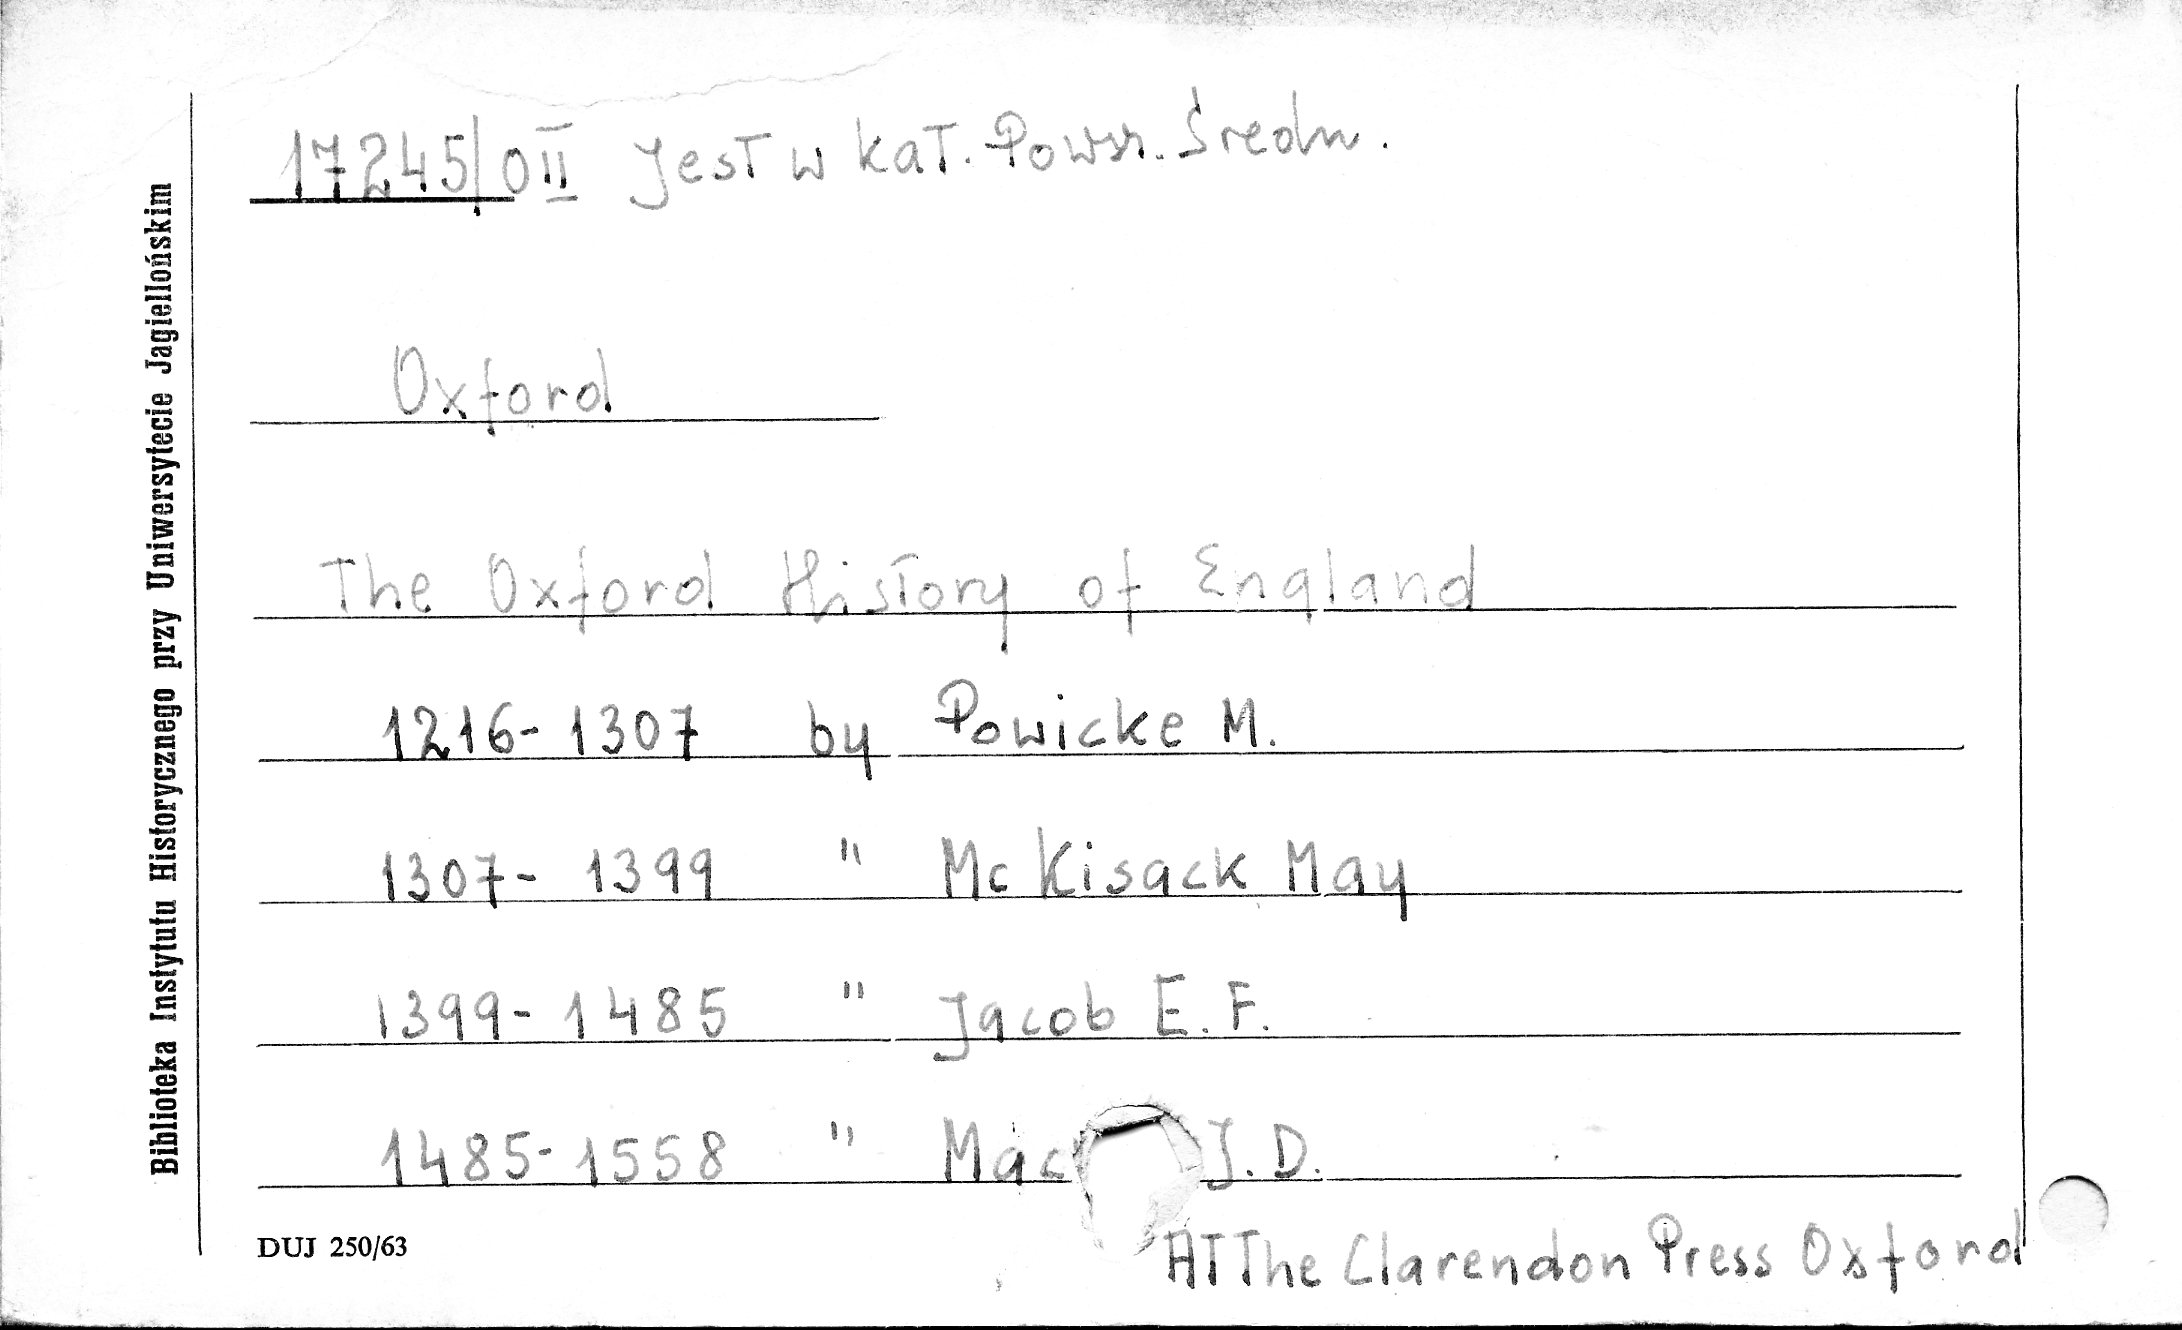 17245/0 II Jest w kat. Powsz. Średn.
Oxford
The Oxford History of England
1216-1307 by Powicke M.
1307-1399 " Mc Kisack May
1399-1485 " Jacob E. F.
1485-1558 " Mac J. D.
At The Clarendon Press Oxford
DUJ 250/63
Biblioteka Instytutu Historycznego przy Uniwersytecie Jagiellońskim